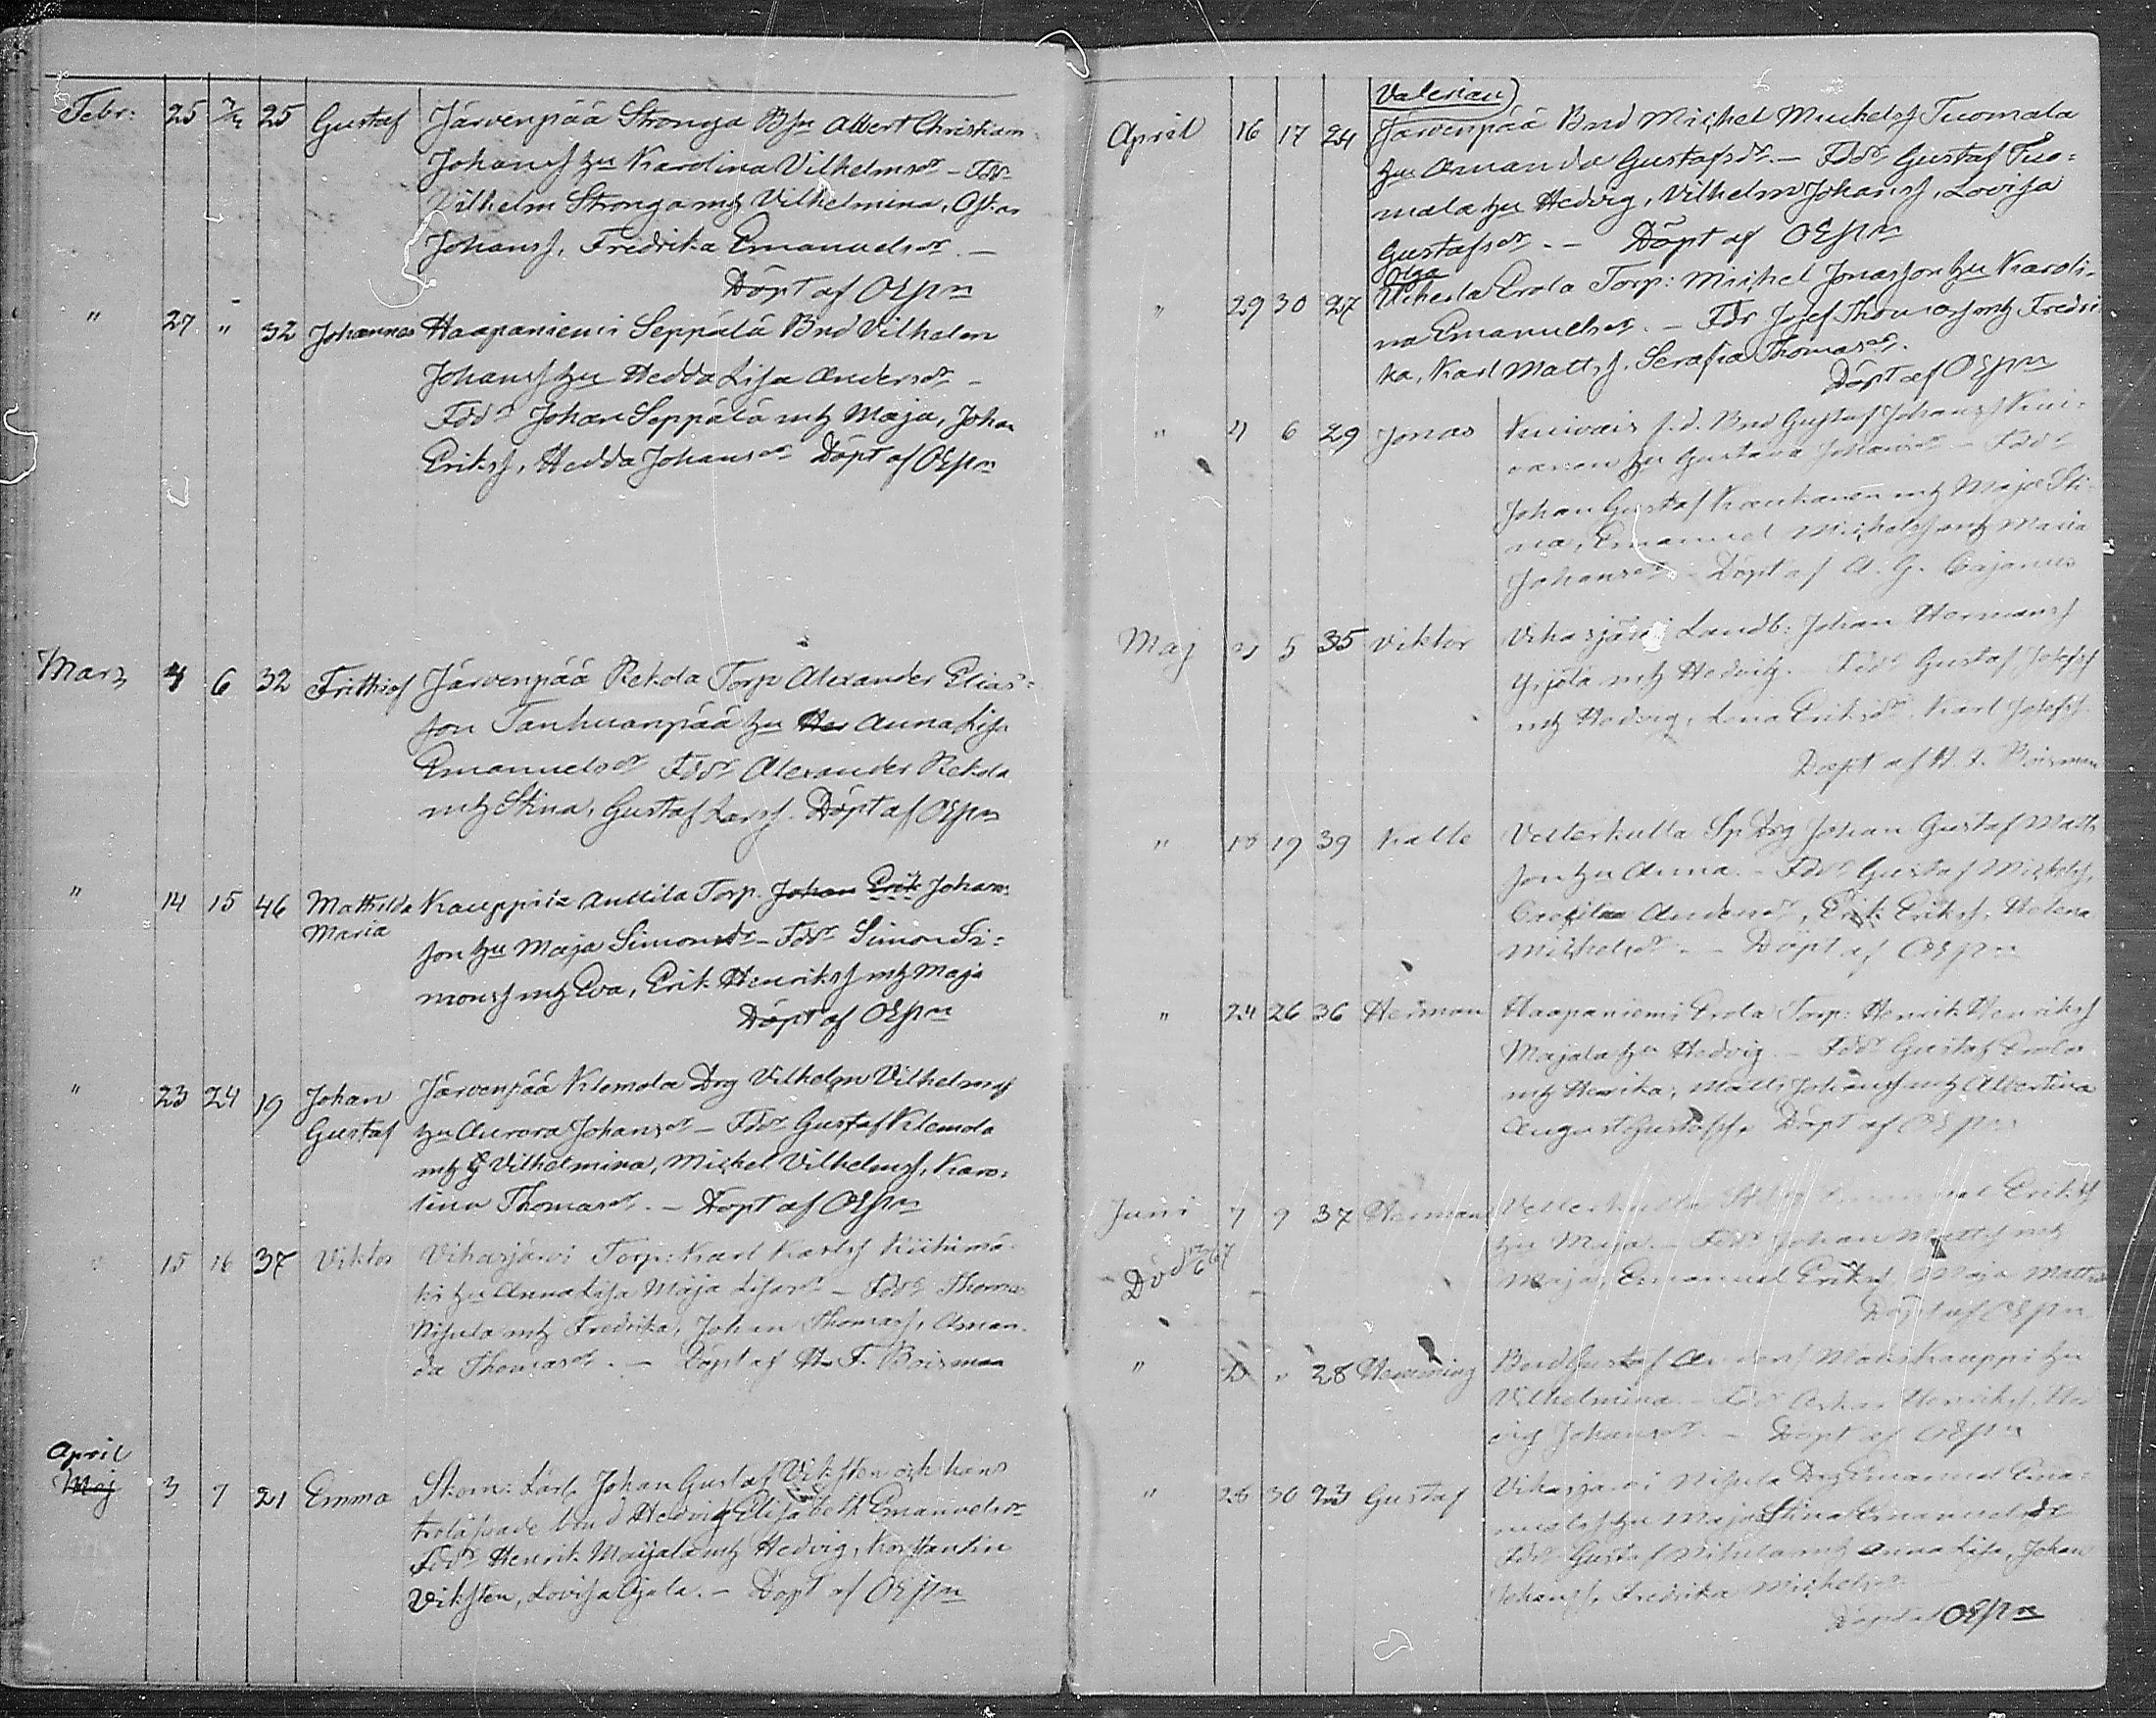 Febr: 25 2/4 25 Gustaf Järvenpää Stronga Bsn Albert Christian
Johanss hu Karolina Vilhelmsdr – Fddr
Vilhelm Stronga mh Vilhelmina, Oskar
Johanss, Fredrika Emanuelsdr. –
Döpt af OEsPm
" 27 " 32 Johannes Haapaniemi Seppälä Bnd Vilhelm
Johanss hu Hedda Lisa Andersdr –
Fddr Johan Seppälä mh Maja, Johan
Erikss, Hedda Johansdr Döpt af OEsPm
Mars 4 6 32 Frithiof Järvenpää Rekola Torp Alexander Elias=
son Tanhuanpää hu Anna Lisa
Emanuelsdr Fddr Alexander Rekola
mh Stina, Gustaf Larss. Döpt af OEsPm
" 14 15 46 Mathilda Kauppila Anttila Torp. Johan Erik Johans=
Maria
son hu Maja Simonsdr – Fddr Simon Si=
monss mh Eva, Erik Henrikss mh Maja
Döpt af OEsPm
" 23 24 19 Johan Järvenpää Klemola Drg Vilhelm Vilhelmss
Gustaf hu Aurora Johansdr – Fddr Gustaf Klemola
mh Vilhelmina, Michel Vilhelmss, Karo=
lina Thomasdr. – Döpt af OEsPm
15 16 37 Viktor Vihasjärvi Torp: Karl Karlss Riihimä-
ki hu Anna Lisa Maja Lisasdr – Fddr Thomas
Nipula mh Fredrika, Johan Thomass, Aman-
da Thomasdr. – Döpt af H. F. Boisman
April
Maj 3 7 21 Emma Skom: Lärl. Johan Gustaf Viksten och hans
trolofvade Hedvig Elisabeth Emanuelsdr
Fddr Henrik Maijala mh Hedvig, Konstantin
Viksten, Lovisa Ojala. – Döpt af OEsPm
Valerian
April 16 17 24 Järvenpää Bnd Michel Michelss Tuomala
hu Amanda Gustafsdr. – Fddr Gustaf Tuo=
mala hu Hedvig, Vilhelm Johanss, Lovisa
Gustafsdr. – Döpt af OEsPm
Olga
" 29 30 27 Erola Torp: Michel Jonasson hu Karoli-
na Emanuelsdr. – Fddr Josef Thomass mh Fredri
ka, Karl Mattss. Serafia Thomasdr.
Döpt af OEsPm
" 4 6 29 Jonas Kuivais f.d. Bnd Gustaf Johanss Kui-
vanen hu Gustava Johansdr – Fddr
Johan Gustaf mh Maja Sti-
na, Emanuel Michelss mh Maria
Johansdr – Döpt af A. G. Cajanus
Maj 5 35 Viktor Vihasjärvi Landb: Johan Hermanss
mh Hedvig. – Fddr Gustaf Josefss
mh Hedvig, Lena Eriksdr. Karl Josefss
Döpt af H. F. Boisman
" 18 19 39 Kalle Vesterkulla Sp Drg Johan Gustaf Matts
son hu Anna. – Fddr Gustaf Michelss,
Caecilia Andersdr, Erik Erikss, Helena
Michelsdr. – Döpt af OEsPm
" 24 26 36 Herman Haapaniemi Erola Torp: Henrik Henrikss
Majala hu Hedvig. – Fddr Gustaf Erola
mh Henrika, Matts Johanss mh Albertina
August Gustafss. Döpt af OEsPm
Juni 7 9 37 Herman Vesterkulla Emanuel Erikss
hu Maja. – Fddr Johan Mattss mh
Maja, Emanuel Erikss, Maja Matts
Död
Döpt af OEsPm
" " 28 Henning Bnd Gustaf Anderss Mauskauppi hu
Vilhelmina. – Fddr Oskar Henrikss, Hed
vig Johansdr. – Döpt af OEsPm
" 28 30 23 Gustaf Vihasjärvi Nipula Drg Emanuel Ema=
nuelss hu Maja Stina Emanuelsdr
Fddr Gustaf Nipula mh Anna Lisa, Johan
Johanss, Fredrika Michelsdr
Döpt af OEsPm